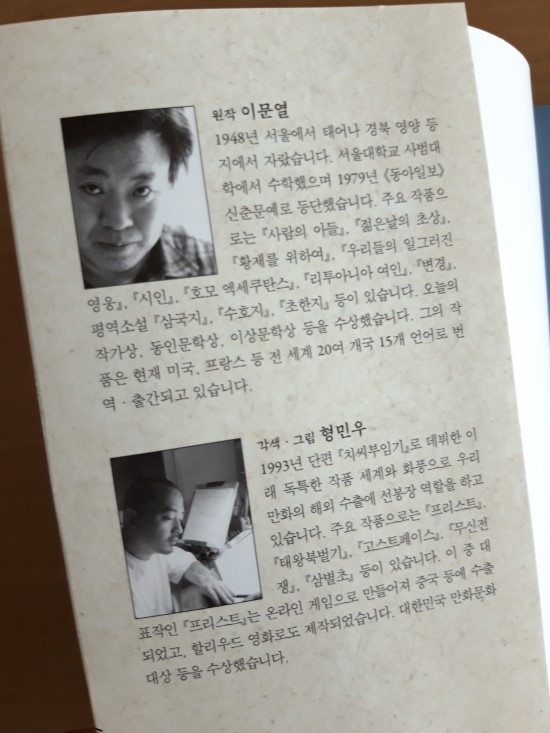 원작 이문열
1948년 서울에서 태어나 경북 영양 등
지에서 자랐습니다. 서울대학교 사범대
학에서 수학했으며 1979년 《동아일보》
신춘문예로 등단했습니다. 주요 작품으
로는 『사람의 아들』, 『젊은날의 초상』,
『황제를 위하여』, 『우리들의 일그러진
영웅』, 『시인』, 『호모 엑세쿠탄스』, 『리투아니아 여인』, 『변경』,
평역소설 『삼국지』, 『수호지』, 『초한지』 등이 있습니다. 오늘의
작가상, 동인문학상, 이상문학상 등을 수상했습니다. 그의 작
품은 현재 미국, 프랑스 등 전 세계 20여 개국 15개 언어로 번
역 · 출간되고 있습니다.
각색 · 그림 형민우
1993년 단편 『치씨부임기』로 데뷔한 이
래 독특한 작품 세계와 화풍으로 우리
만화의 해외 수출에 선봉장 역할을 하고
있습니다. 주요 작품으로는 『프리스트』,
『태왕북벌기』, 『고스트페이스』, 『무신전
쟁』, 『삼별초』 등이 있습니다. 이 중 대
표작인 『프리스트』는 온라인 게임으로 만들어져 중국 등에 수출
되었고, 할리우드 영화로도 제작되었습니다. 대한민국 만화문화
대상 등을 수상했습니다.